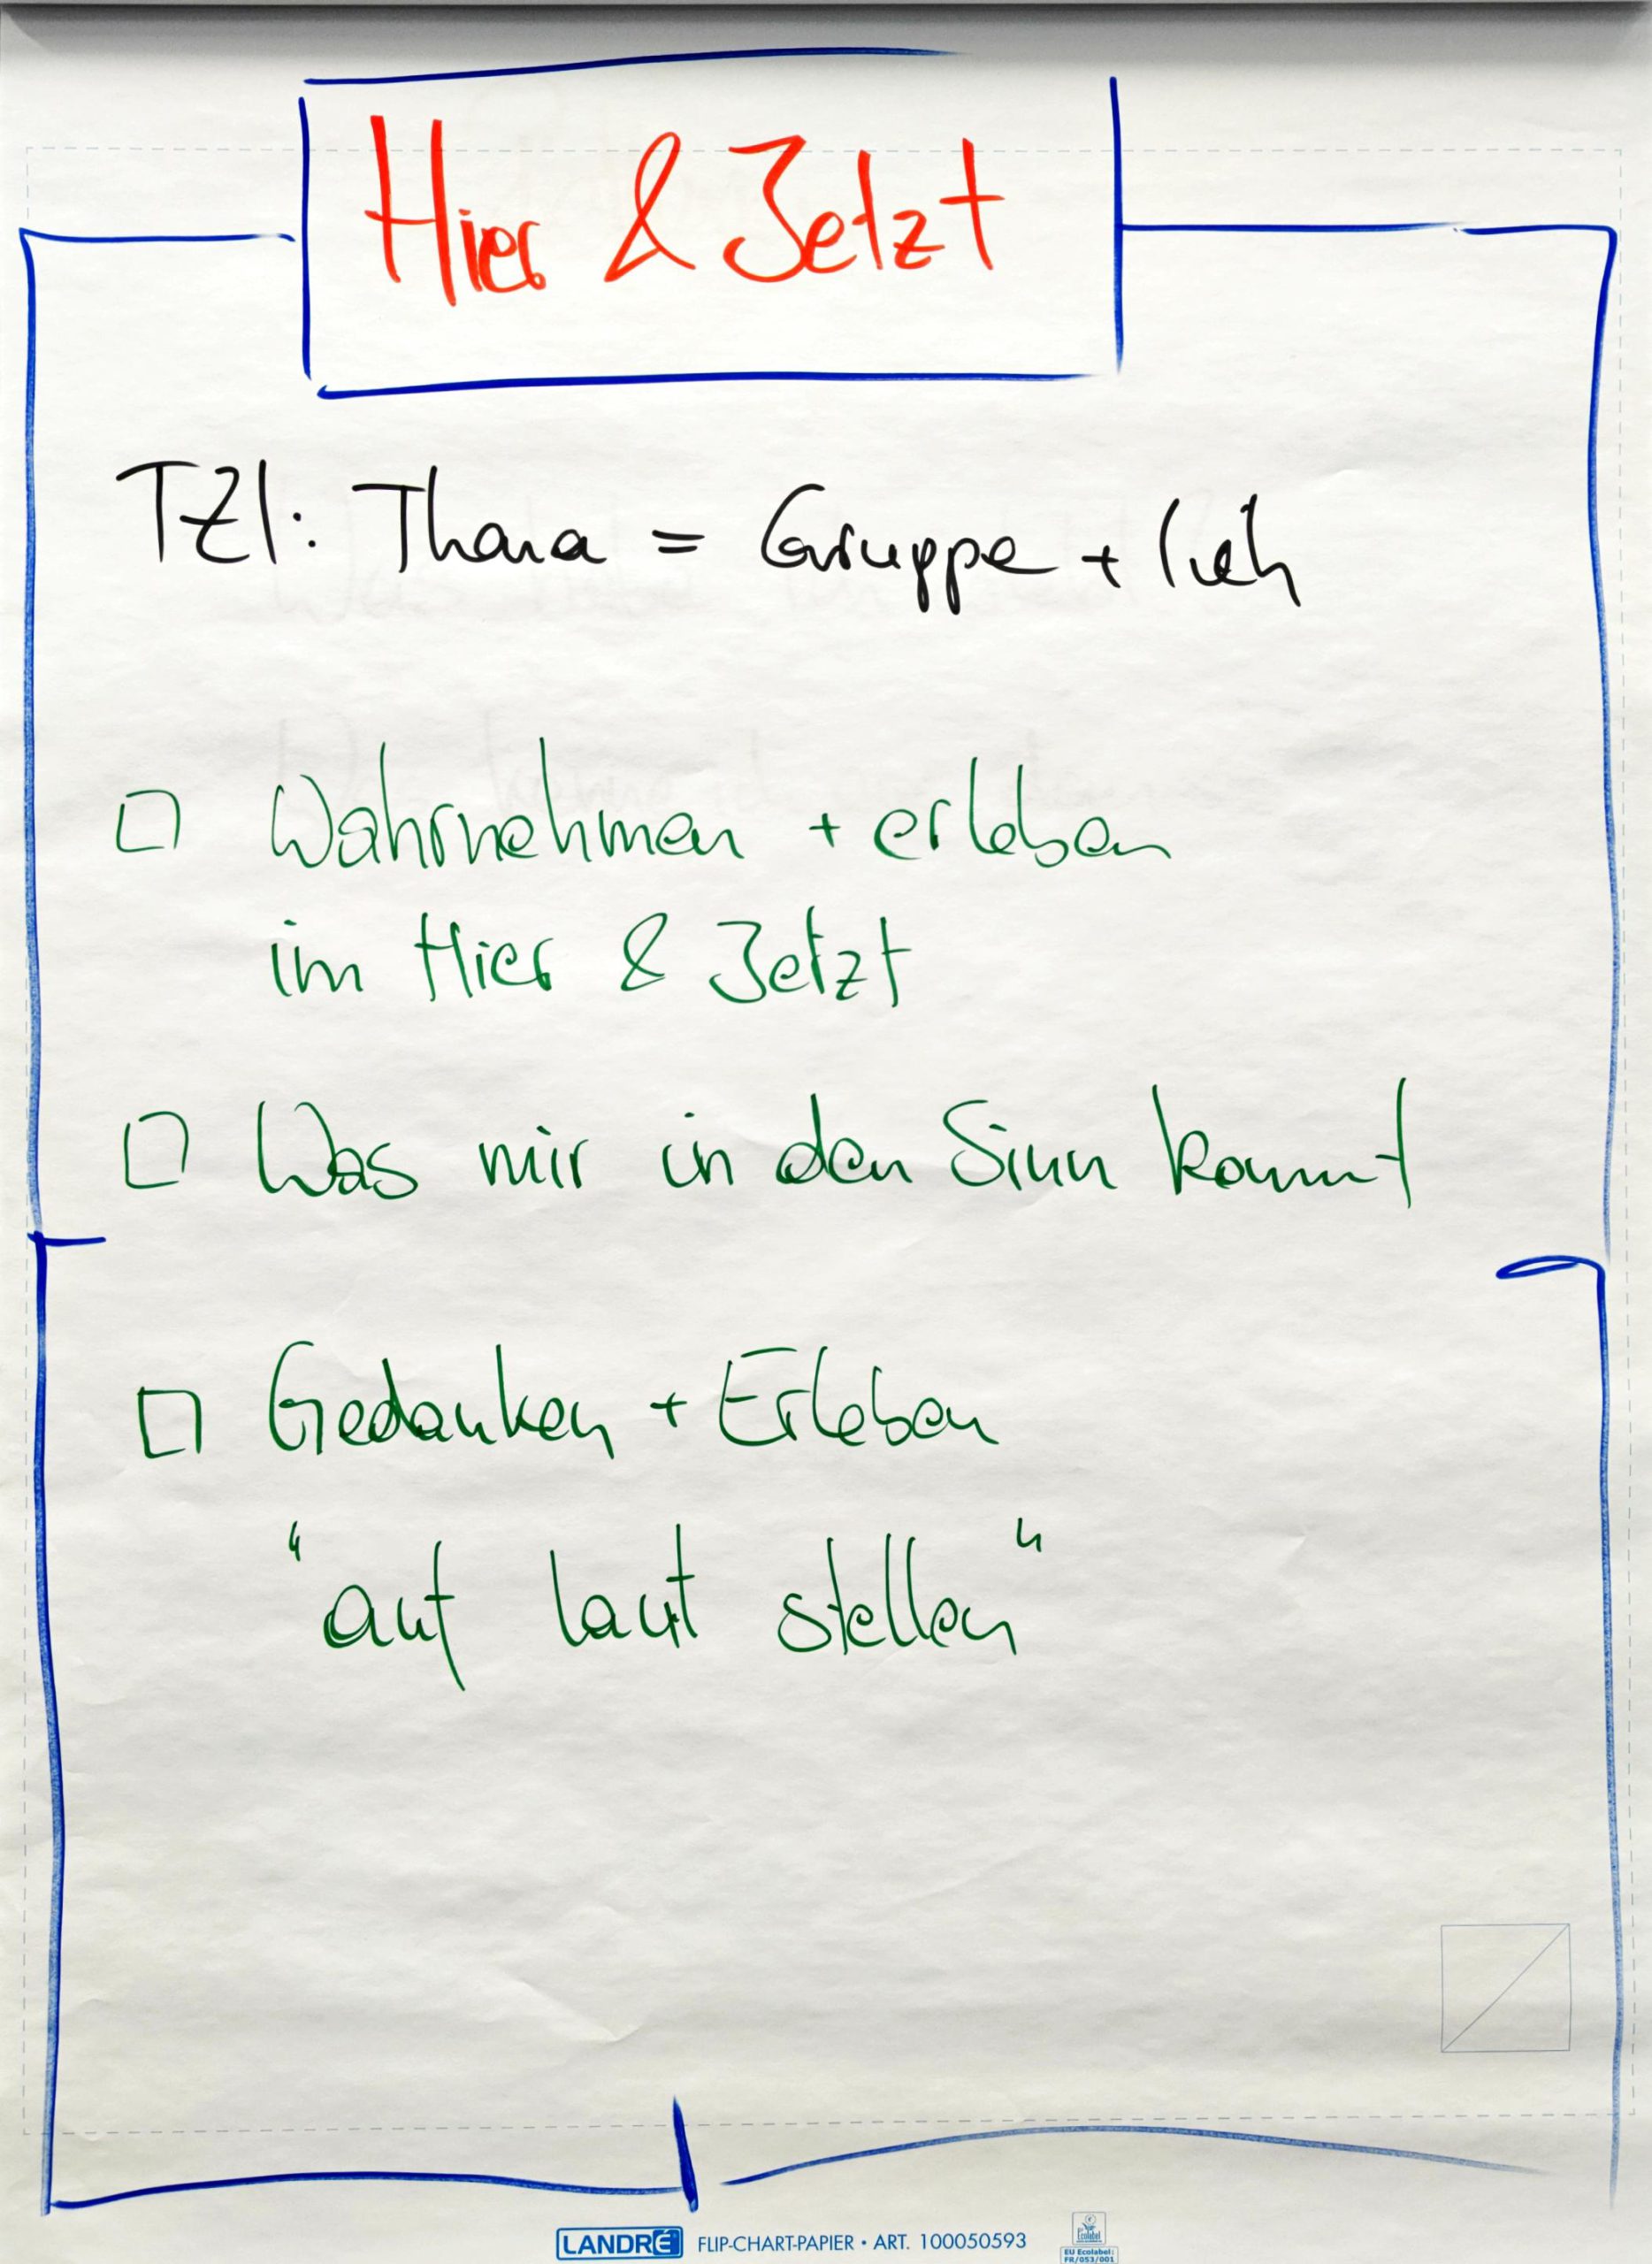 Hier & Jetzt
TZI: Thema = Gruppe + Ich
□ Wahrnehmen + erleben
im Hier & Jetzt
□ Was mir in den Sinn kommt
□ Gedanken + Erleben
"auf laut stellen"
LANDRÉ FLIP-CHART-PAPIER • ART. 100050593
Ecolabel
EU Ecolabel:
FR/053/001